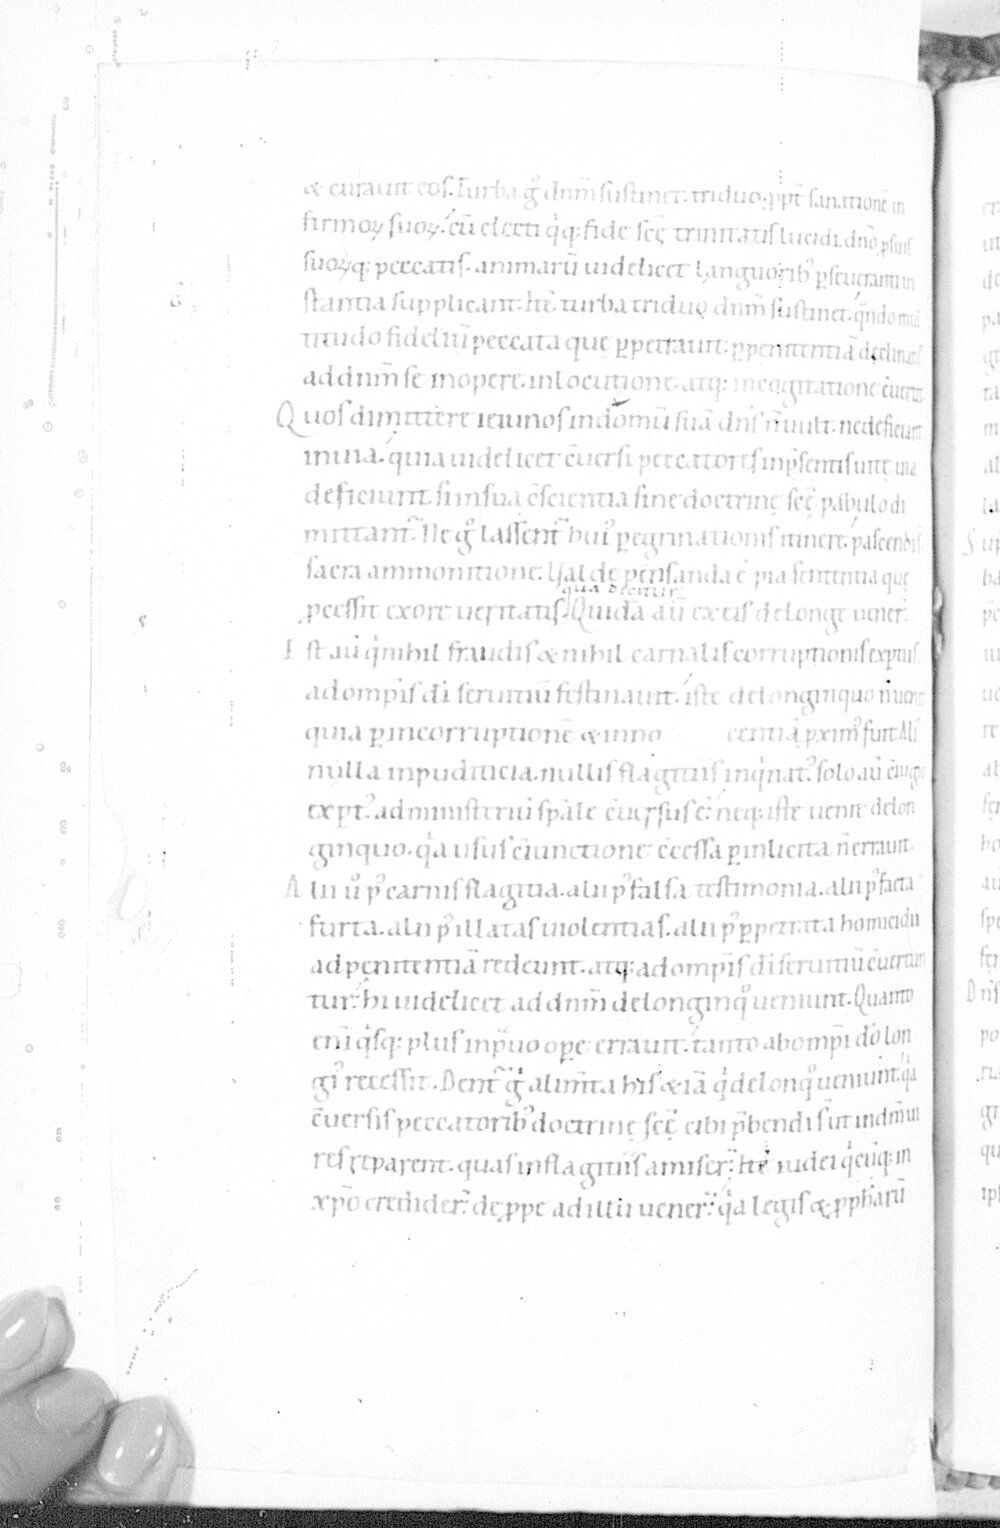 & curauit eos. Turba g̊ dnm̄ sustinet. triduo. ꝓpt̄ sanationē in
firmoꝝ suoꝝ. cū electi q̇q; fide sc̄ę trinitatis lucidi. dn̄o ꝓ suis
suoꝝq; peccatis. animarū uidelicet languorib; ꝑseueranti in
stantia supplicant. Itē turba triduo dnm̄ sustinet. qn̄do mul
titudo fideliū peccata quę ꝑpetrauit. ꝑ penitentiā declinans.
ad dnm̄ se in opere. in locutione. atq; in cogitatione c̄uertit
Quos dimittere ieiunos in domū suā dn̄s n̄ uult. ne deficiant
in uia. quia uidelicet c̄uersi peccatores in p̄sentis uitę uia
deficiunt. si in sua c̄scientia sine doctrinę sc̄ę pabulo di
mittant᷑. Ne g̊ lassent᷑ hui᷒ peregrinationis itinere. pascendi s̄
sacra ammonitione. Valde pensanda ē pia sententia quę
ꝓcessit ex ore ueritatis. qua dicitur. Quidā aū ex eis de longe uener̄.
Est aū q̇ nihil fraudis & nihil carnalis corruptionis exptus.
ad omp̄is dī seruitiū festinauit. iste de longinquo n̄ uenit
quia ꝑ incorruptionē & inno centiā ꝓxim᷒ fuit. Ali᷒
nulla inpudicicia. nullis flagitiis inq̇nat᷒. solo aū c̄iugio
exꝑt᷒. ad ministeriū sp̄ale c̄uersus ē. neq; iste uenit de lon
ginquo. q̇a usus c̄iunctione c̄cessa ꝑ inlicita n̄ errauit.
Alii u̇ p᷒ carnis flagitia. alii p᷒ falsa testimonia. alii p᷒ facta
furta. alii p᷒ illatas uiolentias. alii p᷒ ꝑpetrata homicidia
ad penitentiā redeunt. atq; ad omp̄is dī seruitiū c̄uertun
tur. hi uidelicet ad dnm̄ de longinq̊ ueniunt. Quanto
eni̅ q̇sq; plus in p̄uo opere errauit. tanto ab omp̄i dō lon
gi᷒ recessit. Dent᷑ g̊ alim̄ta his & iā q̇ de longinq̊ ueniunt. q̇a
c̄uersis peccatorib; doctrinę sc̄ę cibi p̄bendi s̄. ut in dn̄m ui
res reparent. quas in flagitiis amiser̄. Itē iudei q̇cūq; in
xp̄o credider̄. de ꝓpe ad illū uener̄. q̇a legis & ꝓphetarū